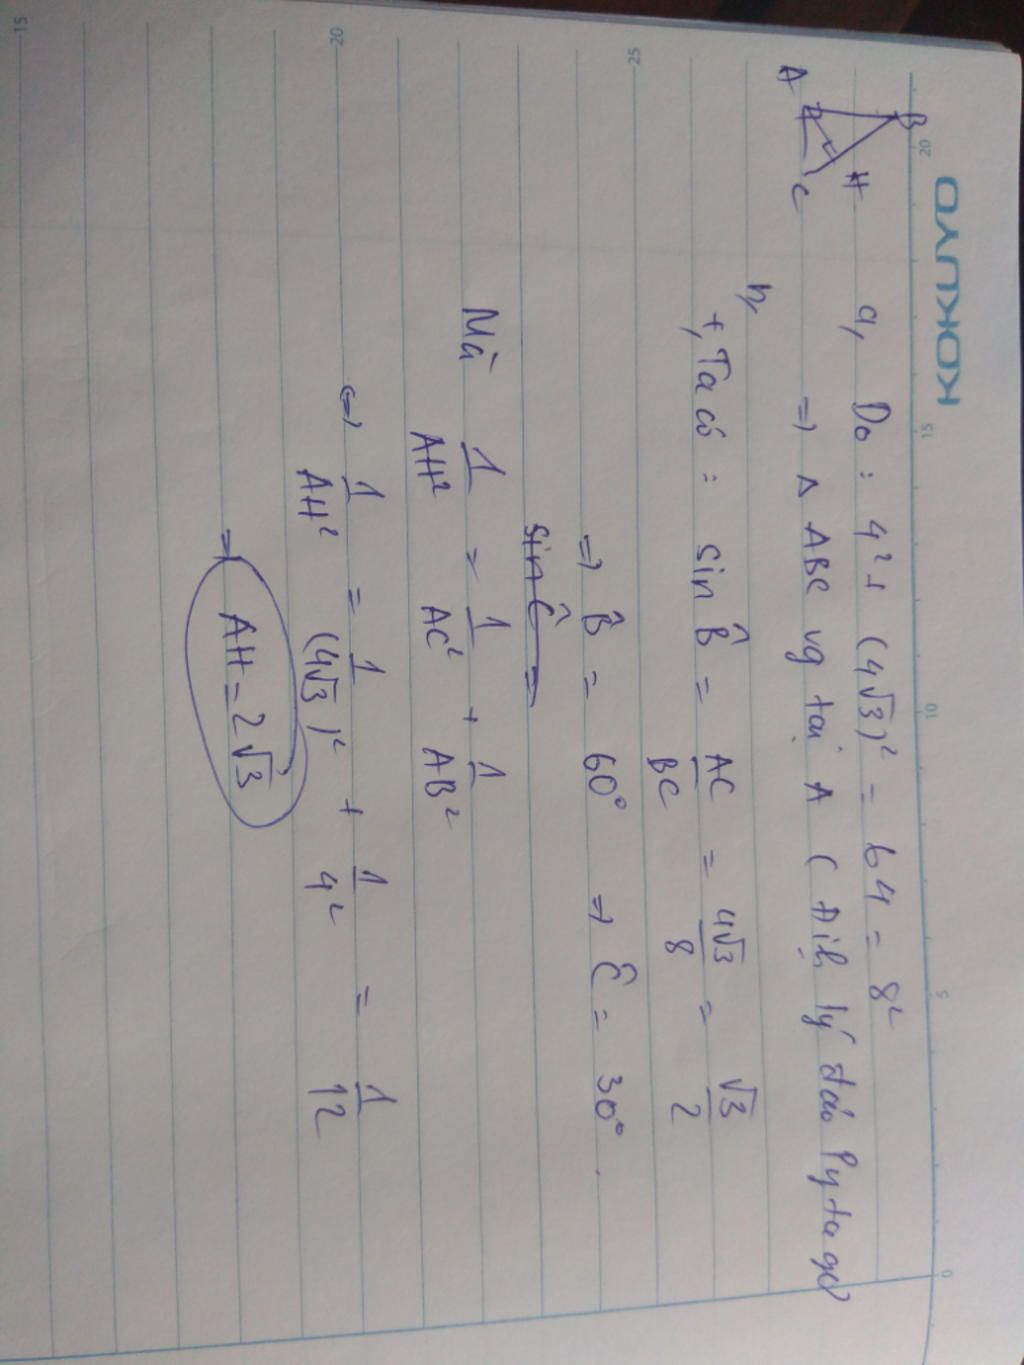 KOKUYO
20 15 10 5 0
B
A
H
C
a, Do : 4² + (4√3)² = 64 = 8²
⇒ Δ ABC vg tại A ( Định lý đảo Pytago
b,
+, Ta có : sin B̂ = AC/BC = 4√3/8 = √3/2
⇒ B̂ = 60° ⇒ Ĉ = 30° .
sin Ĉ =
Mà 1/AH² = 1/AC² + 1/AB²
⇔ 1/AH² = 1/(4√3)² + 1/4² = 1/12
⇒ AH = 2√3
25
20
15